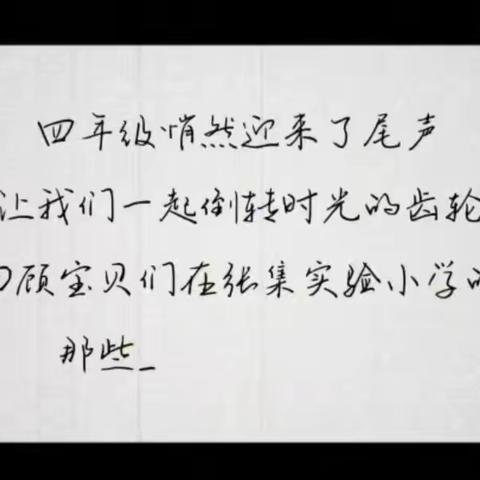 四年级悄然迎来了尾声
让我们一起倒转时光的齿轮
回顾宝贝们在张集实验小学的
那些_